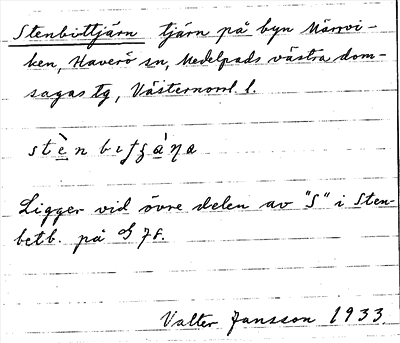 Stenbittjärn tjärn på byn Märrvi-
ken, Haverö sn, Medelpads västra dom-
sagas tg, Västernorrl. l.
Ligger vid övre delen av "S" i Sten-
betb. på
Valter Jansson 1933.